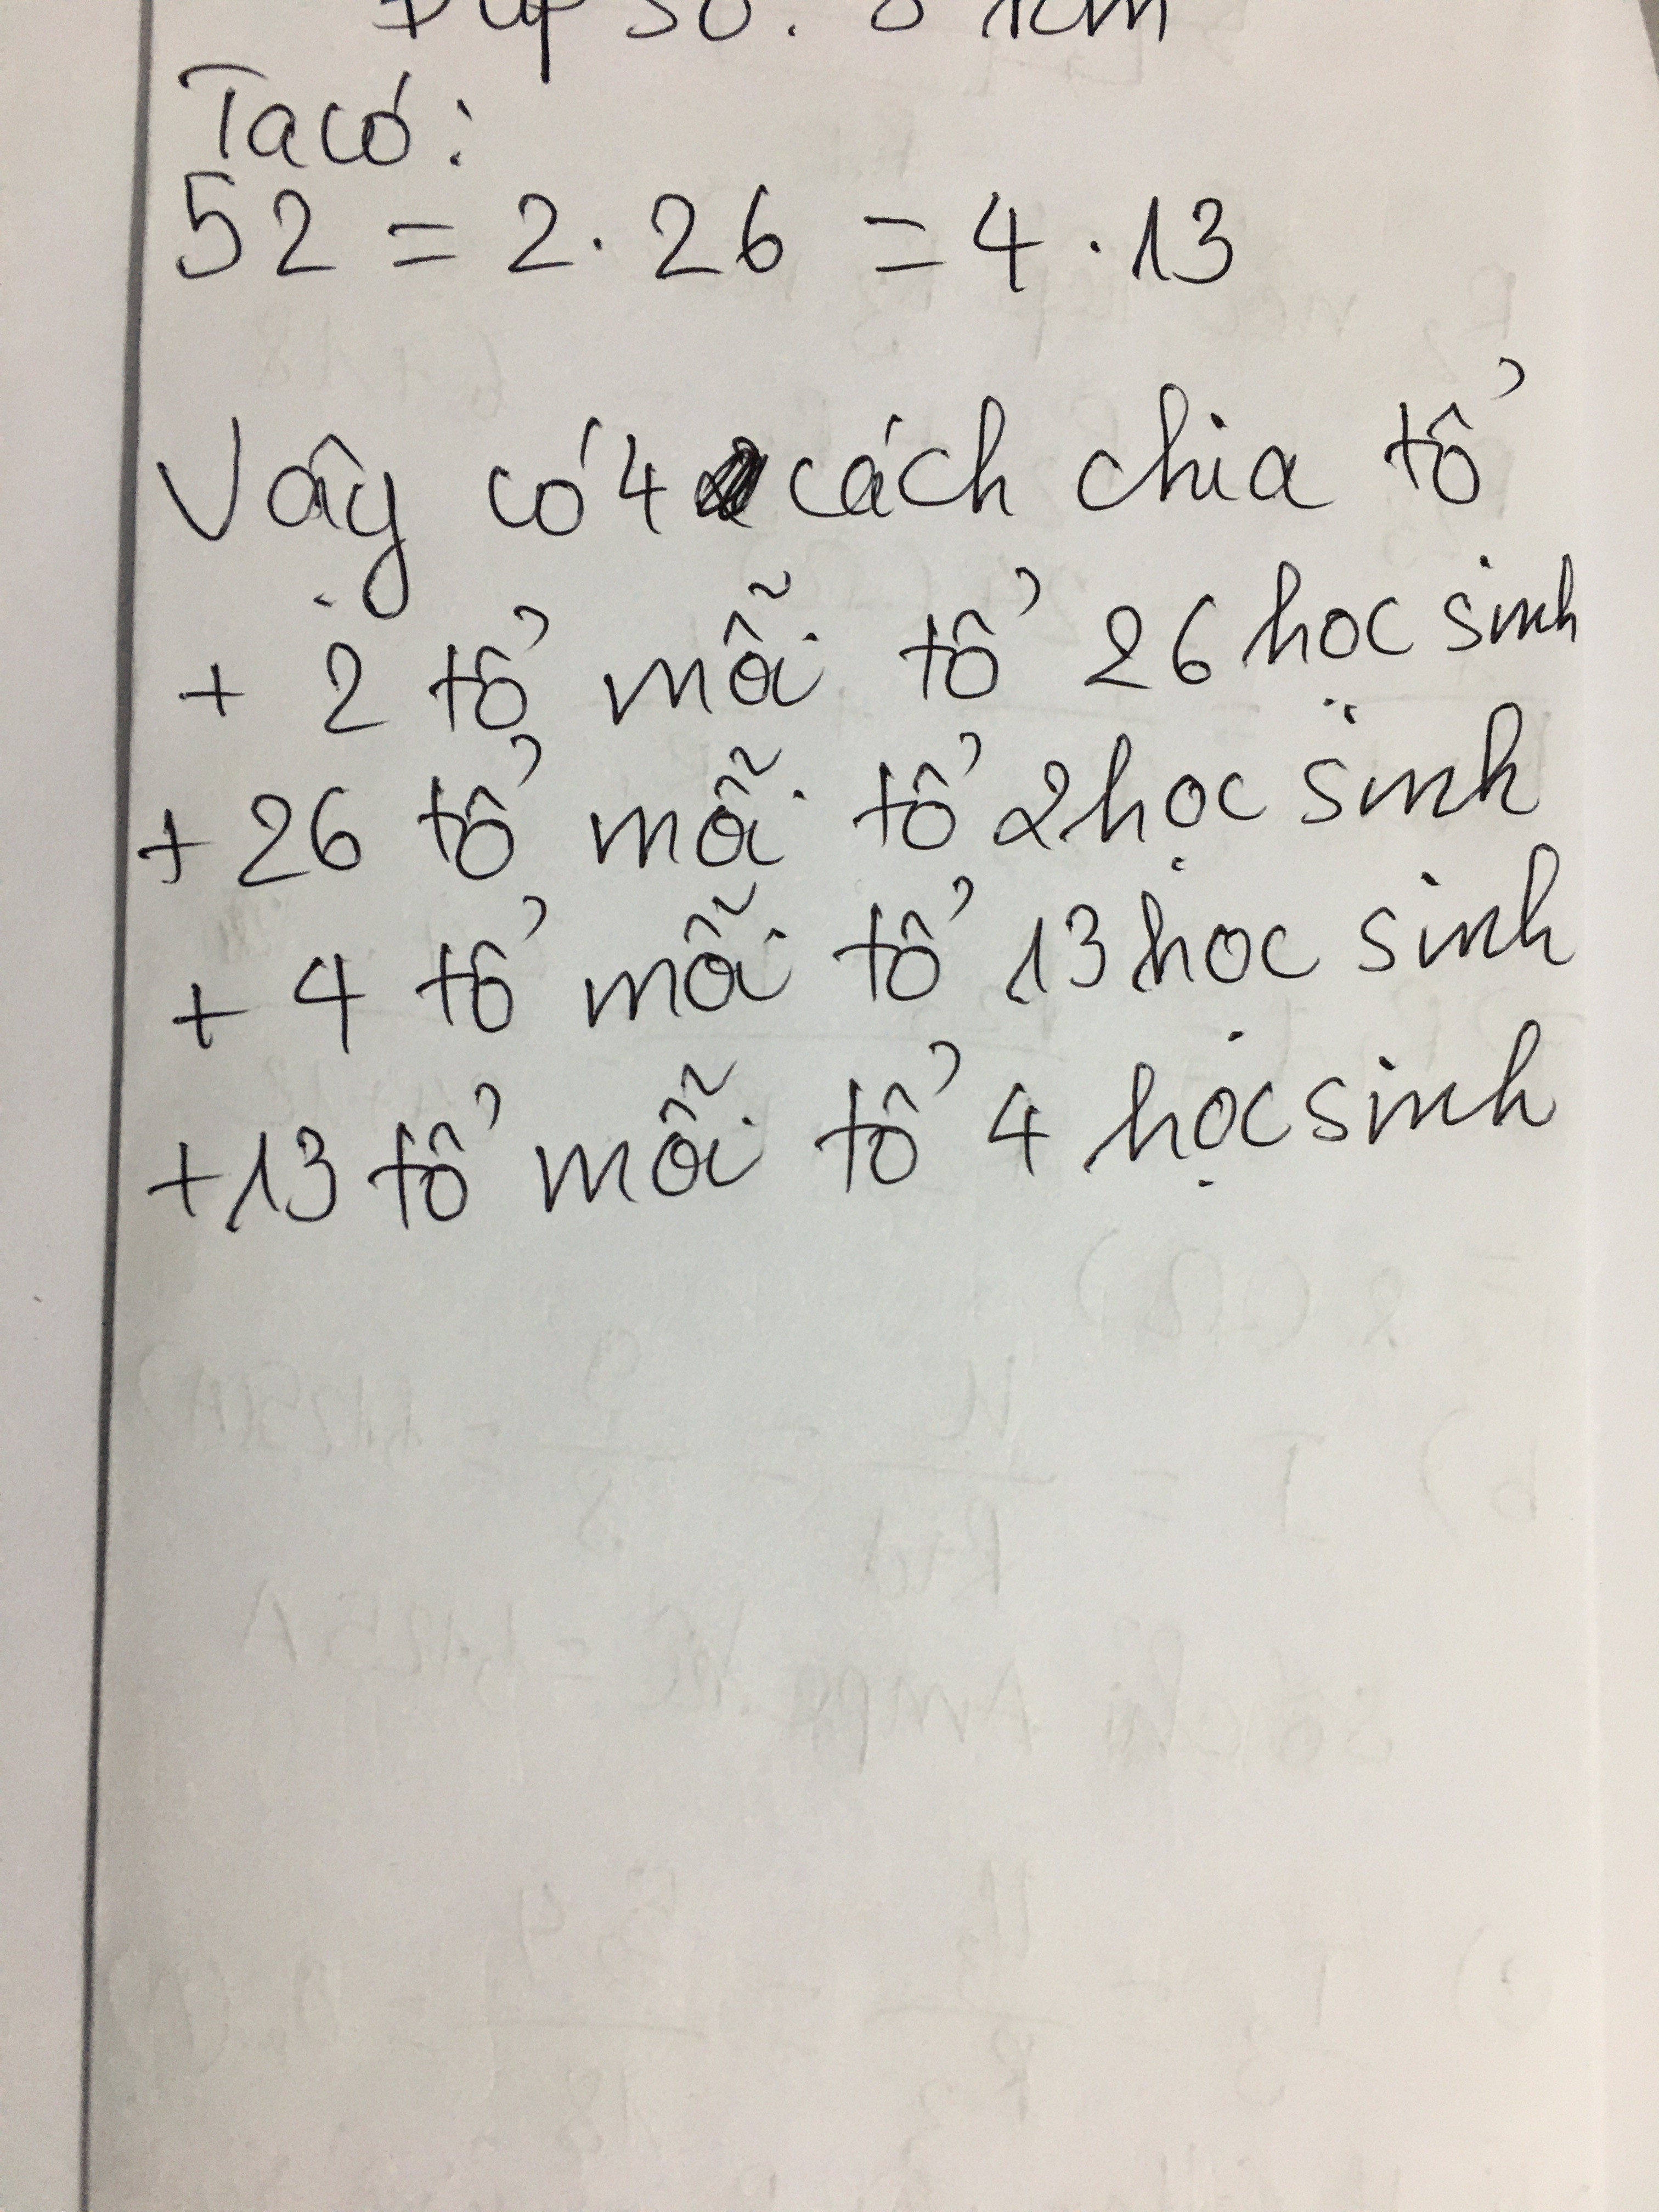 Đáp số: 8 km
Ta có:
52 = 2 . 26 = 4 . 13
Vậy có 4 cách chia tổ
+ 2 tổ mỗi tổ 26 học sinh
+ 26 tổ mỗi tổ 2 học sinh
+ 4 tổ mỗi tổ 13 học sinh
+ 13 tổ mỗi tổ 4 học sinh